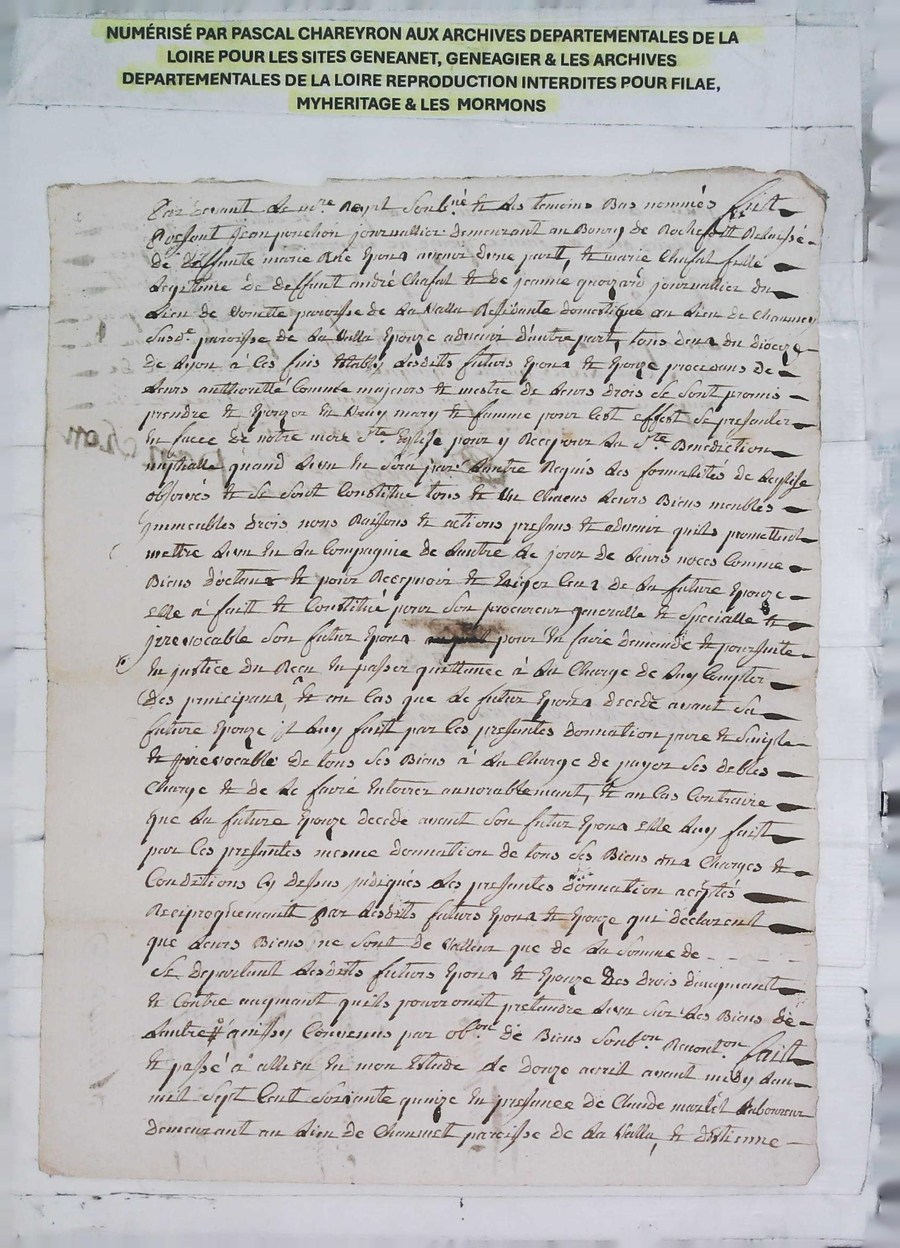 NUMÉRISÉ PAR PASCAL CHAREYRON AUX ARCHIVES DEPARTEMENTALES DE LA
LOIRE POUR LES SITES GENEANET, GENEAGIER & LES ARCHIVES
DEPARTEMENTALES DE LA LOIRE REPRODUCTION INTERDITES POUR FILAE,
MYHERITAGE & LES MORMONS
Par devant le no.re Royal Soub.né & les temoins Bas nommés fust
present jean ponchon journallier demeurant au Bourg de Rochefort
de deffunte marie Epoux avenir dune part, & marie Chafal fille
Legitime de deffunt andré Chafal & de jeanne journallier du
Lien de paroisse de La Valla Residante domestique au Lien de
Susd.e paroisse de La Valla Epouze advenir d'autre part, tous deux du dioceze
de Lyon à Ces fins Lesdits futurs Epoux & Epouze procedans de
Leurs authoritté Comme majeurs & mestre de Leurs drois Se Sont promis
prendre & Epouzer En Vray mary & famme pour Cest effest Se presanter
En face de notre mere S.te Eglise pour y Recepvoir La S.te Benediction
nuptialle quand Lun En Sera par Lautre Requis Les formalités de Leglise
observés & Se Sont Constitue tous & Un Chacus Leurs Biens meubles
jmmeubles drois noms Raisons & actions presans & advenir quils promettent
mettre Lun En La Compagnie de Lautre Le jour de Leurs noces Comme
Biens & pour Recepvoir & Exiger Ceux de La future Epouze
elle à fait & Constitué pour Son procureur generalle & Specialle &
jrrevocable Son futur Epoux pour En faire demande & poursuite
En justice du Recu En passer quittance à La Charge de Luy Compter
des principaux, & en Cas que Le futur Epoux decede avant Sa
future Epouze jl Luy fait par Ces presentes donnation pure & Simple
& jrrevocable de tous Ses Biens à La Charge de payer Ses debtes
Charge & de Le faire Enterrer annorablement, & au Cas Contraire
que La future Epouze decede avant Son futur Epoux elle Luy fait
par Ces presentes mesme donnation de tous Ses Biens aux Charges &
Conditions Cy dessus jndiqués Les presentes donnation aceptés
Reciproquemant par Lesdits futurs Epoux & Epouze qui declarent
que Leurs Biens ne Sont de Valleur que de La Somme de
Se departent Lesdits futurs Epoux & Epouze des drois daugmant
& Contre augmant quils pourroient pretandre Lun Sur Les Biens de
Lautre Convenus par ob.on de Biens Soub.on Renont.on fait
& passé à allieu En mon Estude Le douze avril avant midy Lan
mil Sept Cent Soixante quinze En presance de Claude Laboureur
demeurant au Lien de paroisse de La Valla, & d'Etienne